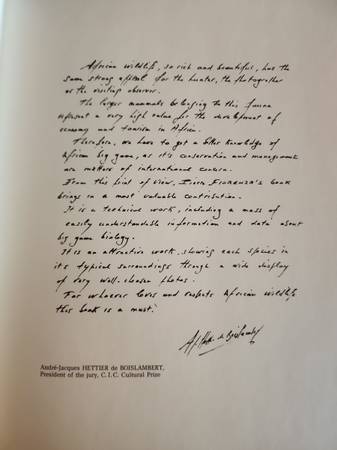 African wildlife, so rich and beautiful, has the
same strong appeal for the hunter, the photographer
or the visiting observer.
The larger mammals belonging to this fauna
represent a very high value for the development of
economy and tourism in Africa.
Therefore, we have to get a better knowledge of
African big game, as it's conservation and management
are matters of international concern.
From this point of view, Fiorenza's book
brings in a most valuable contribution.
It is a technical work, including a mass of
easily understandable information and data about
big game biology.
It is an attractive work, showing each species in
it's typical surroundings through a wide display
of very well-chosen photos.
For whoever loves and respects African wildlife
this book is a must.
André-Jacques HETTIER de BOISLAMBERT,
President of the jury, C.I.C. Cultural Prize